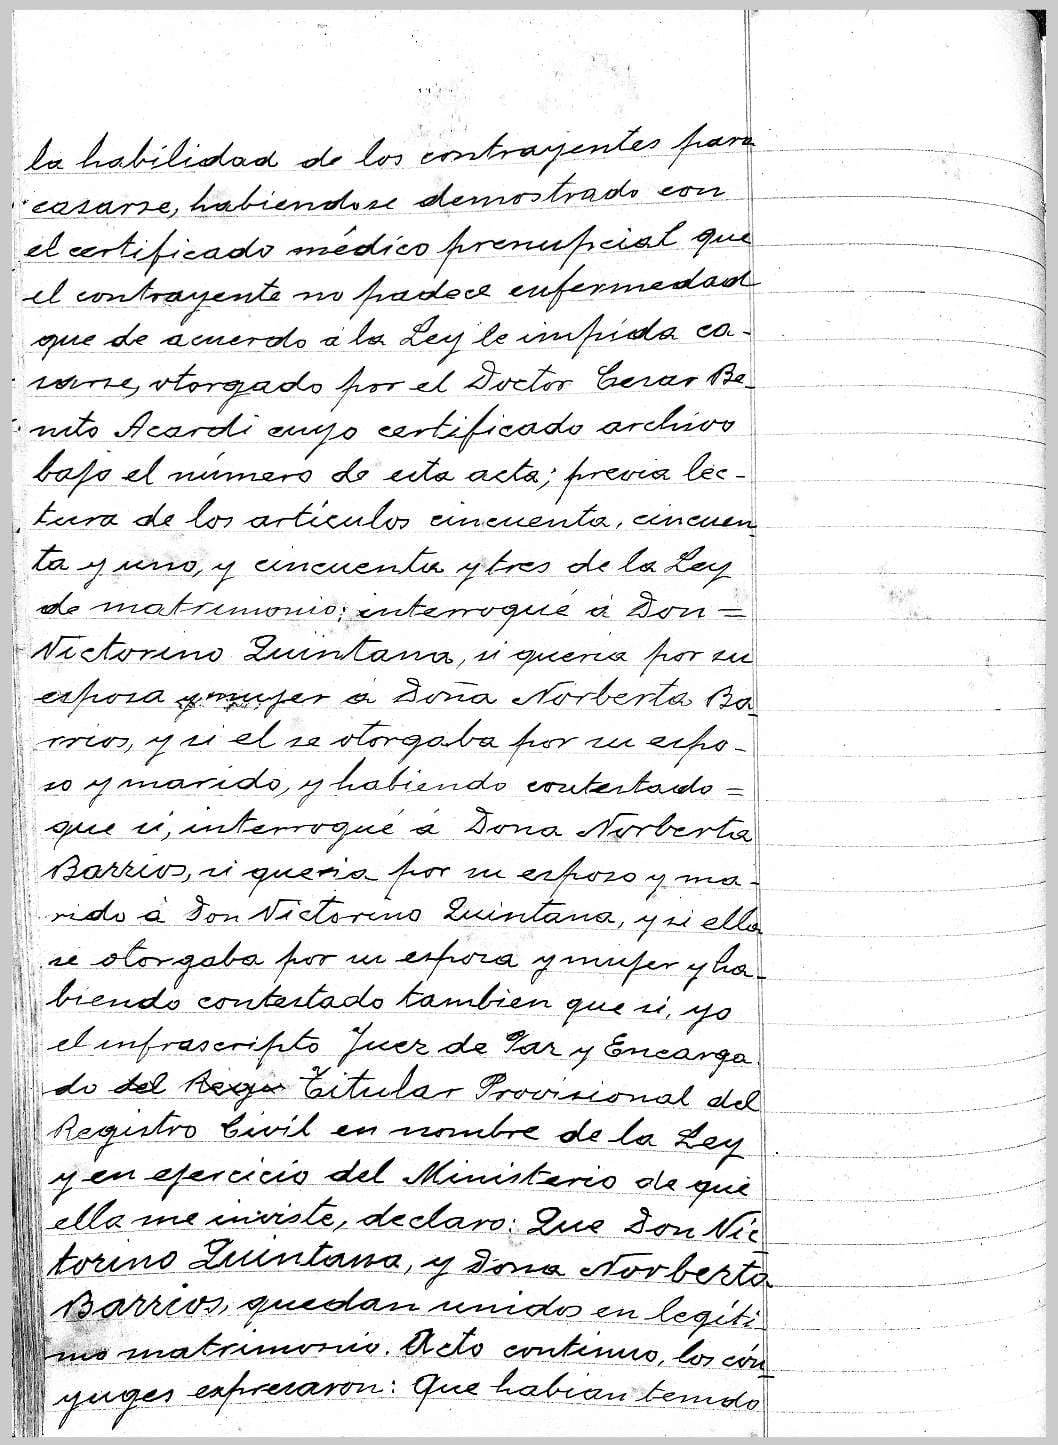 la habilidad de los contrayentes para
casarse, habiendose demostrado con
el certificado médico prenupcial que
el contrayente no padece enfermedad
que de acuerdo á la Ley le impida ca-
sarse, otorgado por el Doctor Cesar Be-
nito Acardi cuyo certificado archivo
bajo el número de esta acta; previa lec-
tura de los artículos cincuenta, cincuen
ta y uno, y cincuenta y tres de la Ley
de matrimonio; interrogué á Don =
Victorino Quintana, si queria por su
esposa y mujer á Doña Norberta Ba
rrios, y si el se otorgaba por su espo-
so y marido, y habiendo contestado =
que si, interrogué á Dona Norberta
Barrios, si queria por su esposo y ma-
rido á Don Victorino Quintana, y si ella
se otorgaba por su esposa y mujer y ha-
biendo contestado tambien que si, yo
el infrascripto Juez de Paz y Encarga
do del Regis Titular Provisional del
Registro Civil en nombre de la Ley
y en ejercicio del Ministerio de que
ella me inviste, declaro: Que Don Vic
torino Quintana, y Dona Norberta
Barrios, quedan unidos en legíti-
mo matrimonio. Acto continuo, los cón
yuges expresaron: Que habian tenido